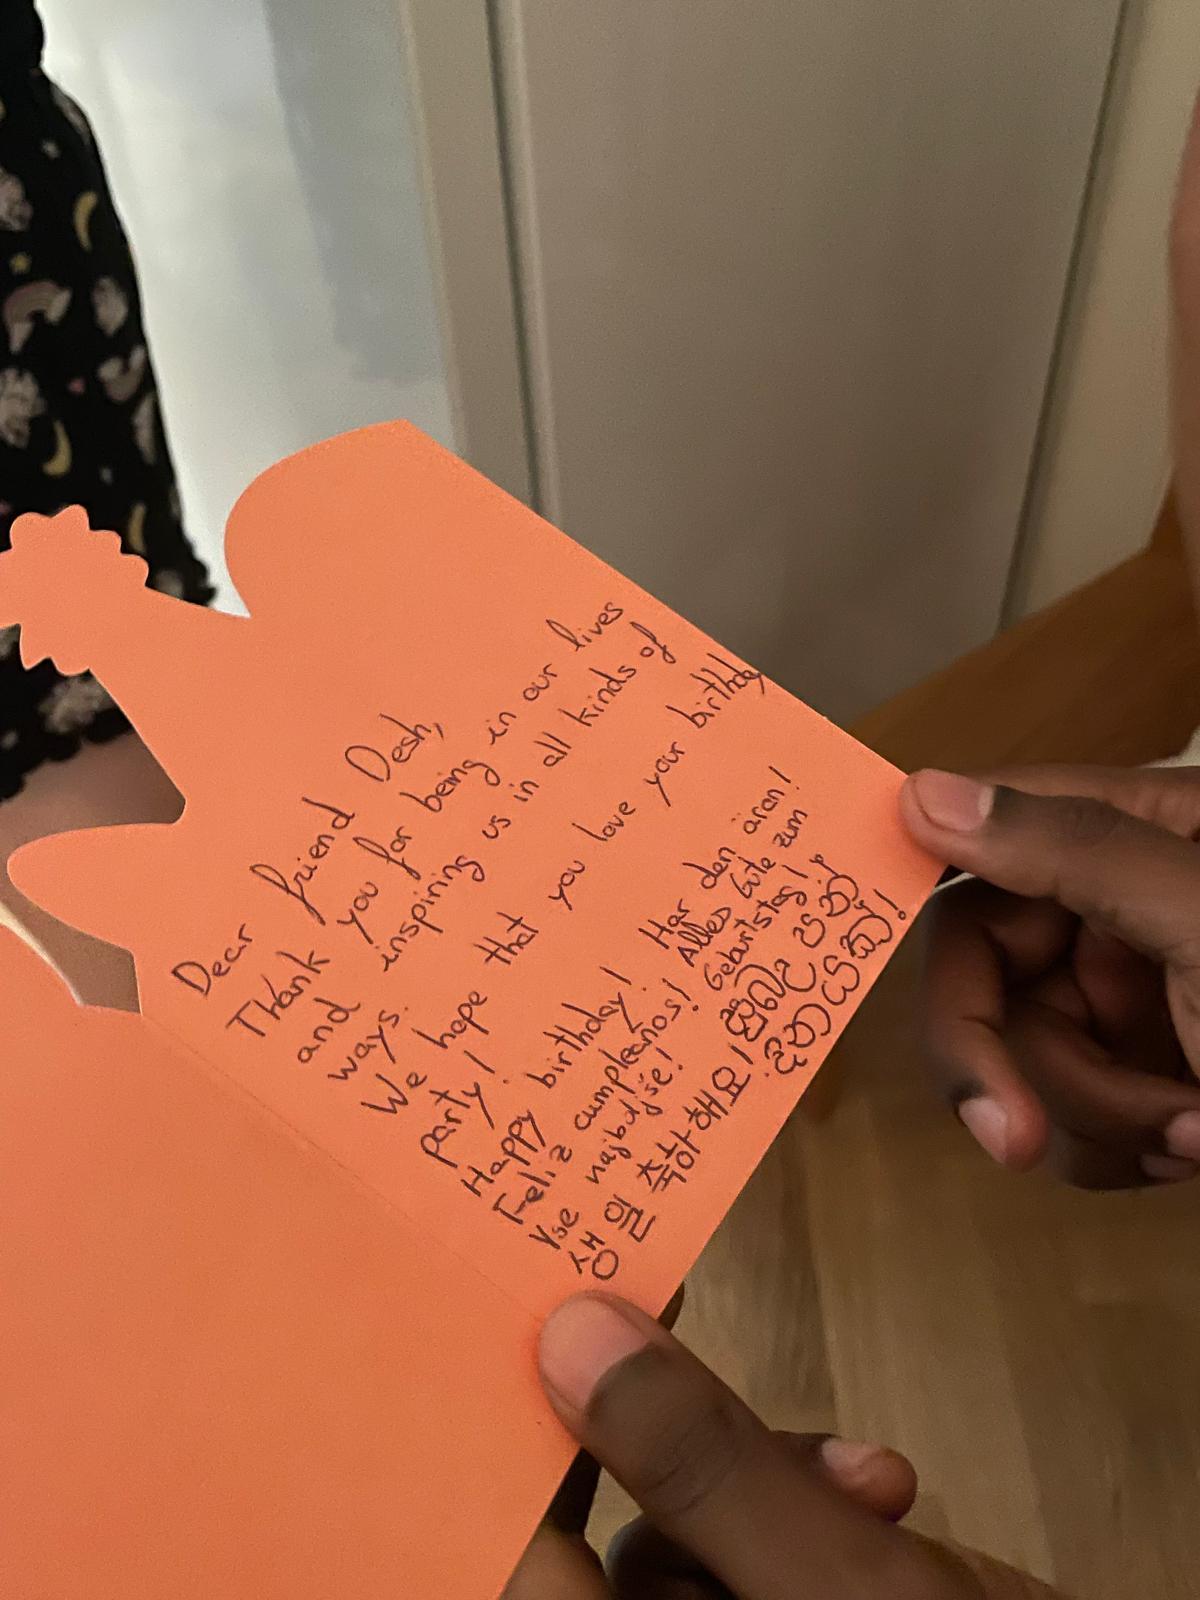 Dear friend Desh,
Thank you for being in our lives
and inspiring us in all kinds of
ways.
We hope that you love your birthday
party!
Happy birthday! Har den äran!
Feliz cumpleaños! Alles Gute zum
Geburtstag!
Vse najboljše!
생일 축하해요! සුබ උපන්
දිනයක්!